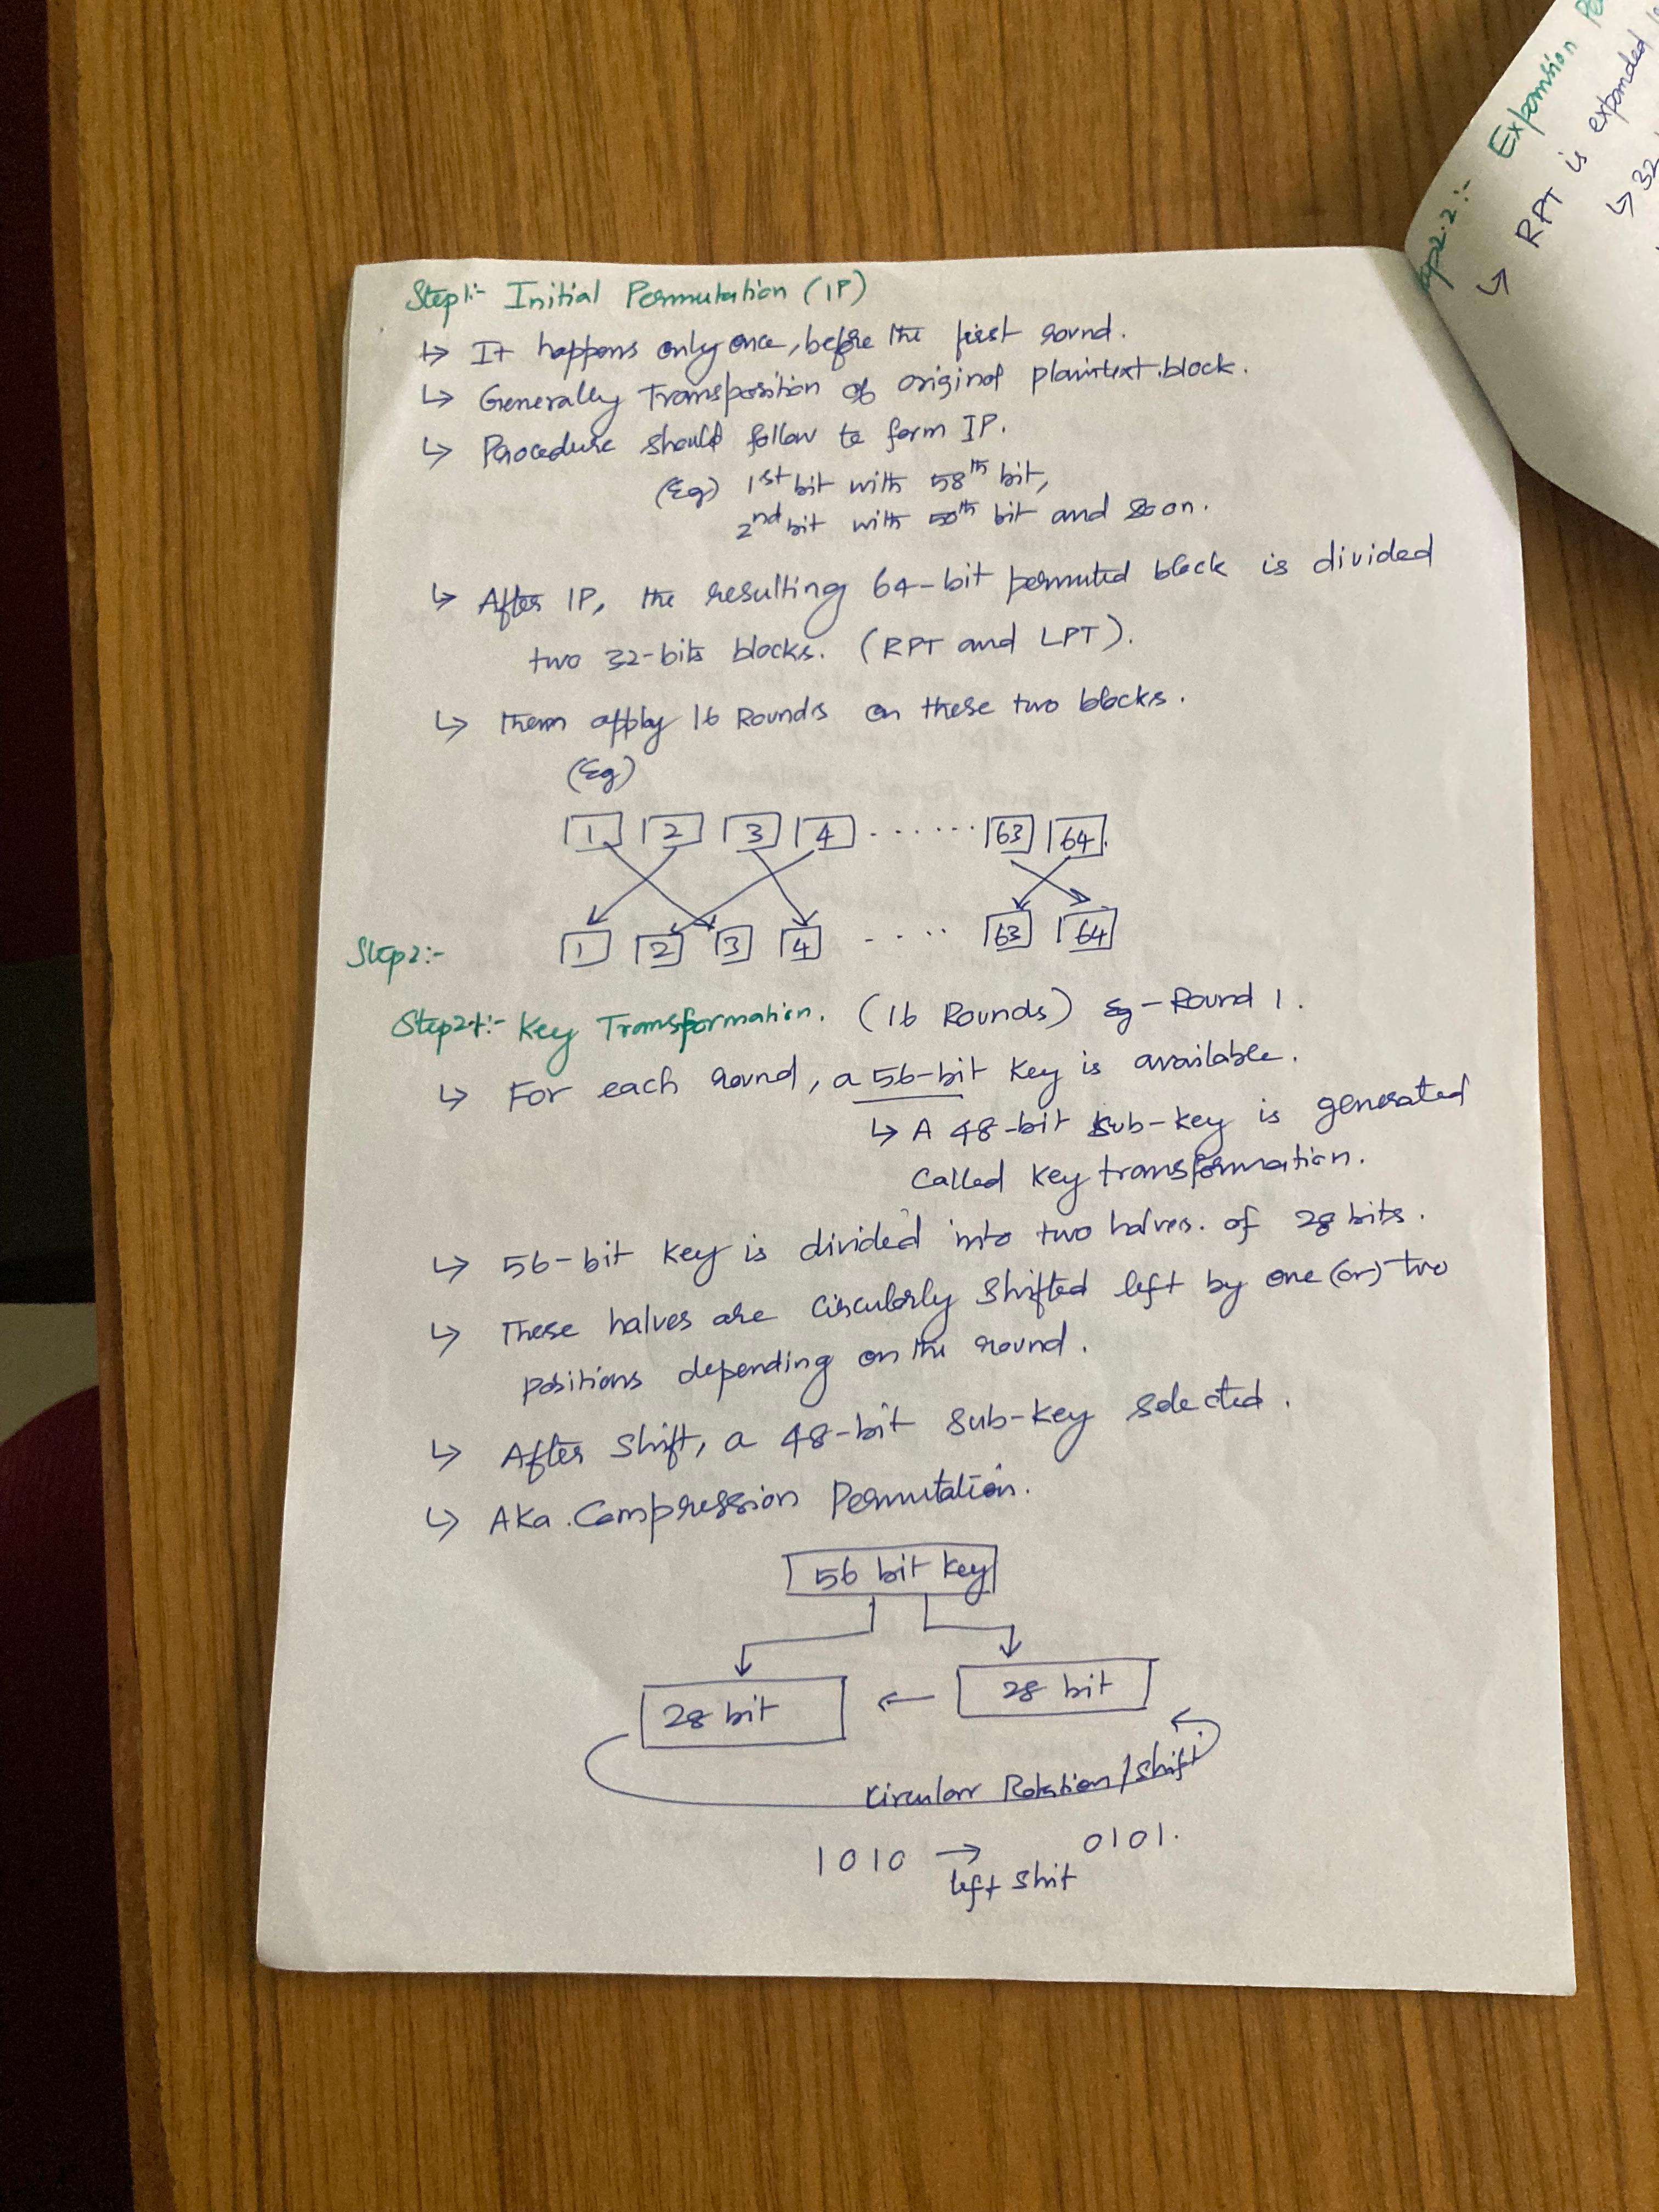 Step1:- Initial Permutation (IP)
↳ It happens only once, before the first round.
↳ Generally Transposition of original plaintext block.
↳ Procedure should follow to form IP.
(Eg) 1st bit with 58th bit,
2nd bit with 50th bit and so on.
↳ After IP, the resulting 64-bit permuted block is divided
two 32-bits blocks. (RPT and LPT).
↳ Then apply 16 Rounds on these two blocks.
(Eg)
1 2 3 4 ....... 63 64
1 2 3 4 ..... 63 64
Step2:-
Step2.1:- Key Transformation. (16 Rounds) Eg - Round 1.
↳ For each round, a 56-bit key is available.
↳ A 48-bit sub-key is generated
called key transformation.
↳ 56-bit key is divided into two halves. of 28 bits.
↳ These halves are circularly shifted left by one (or) two
positions depending on the round.
↳ After shift, a 48-bit sub-key selected.
↳ Aka. Compression Permutation.
56 bit key
28 bit ← 28 bit
Circular Rotation/shift
1010 → 0101.
left shit
2.2:- Expansion
↳ RPT is expanded
↳ 32